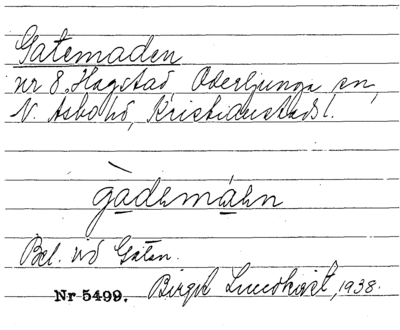 Gatemaden
nr 8. Hagstad, Oderljunga sn,
N. Åsbo hd, Kristianstads l.
gadəmaən
Bel. vid Gatan.
Birgit Lundqvist, 1938.
Nr 5499.